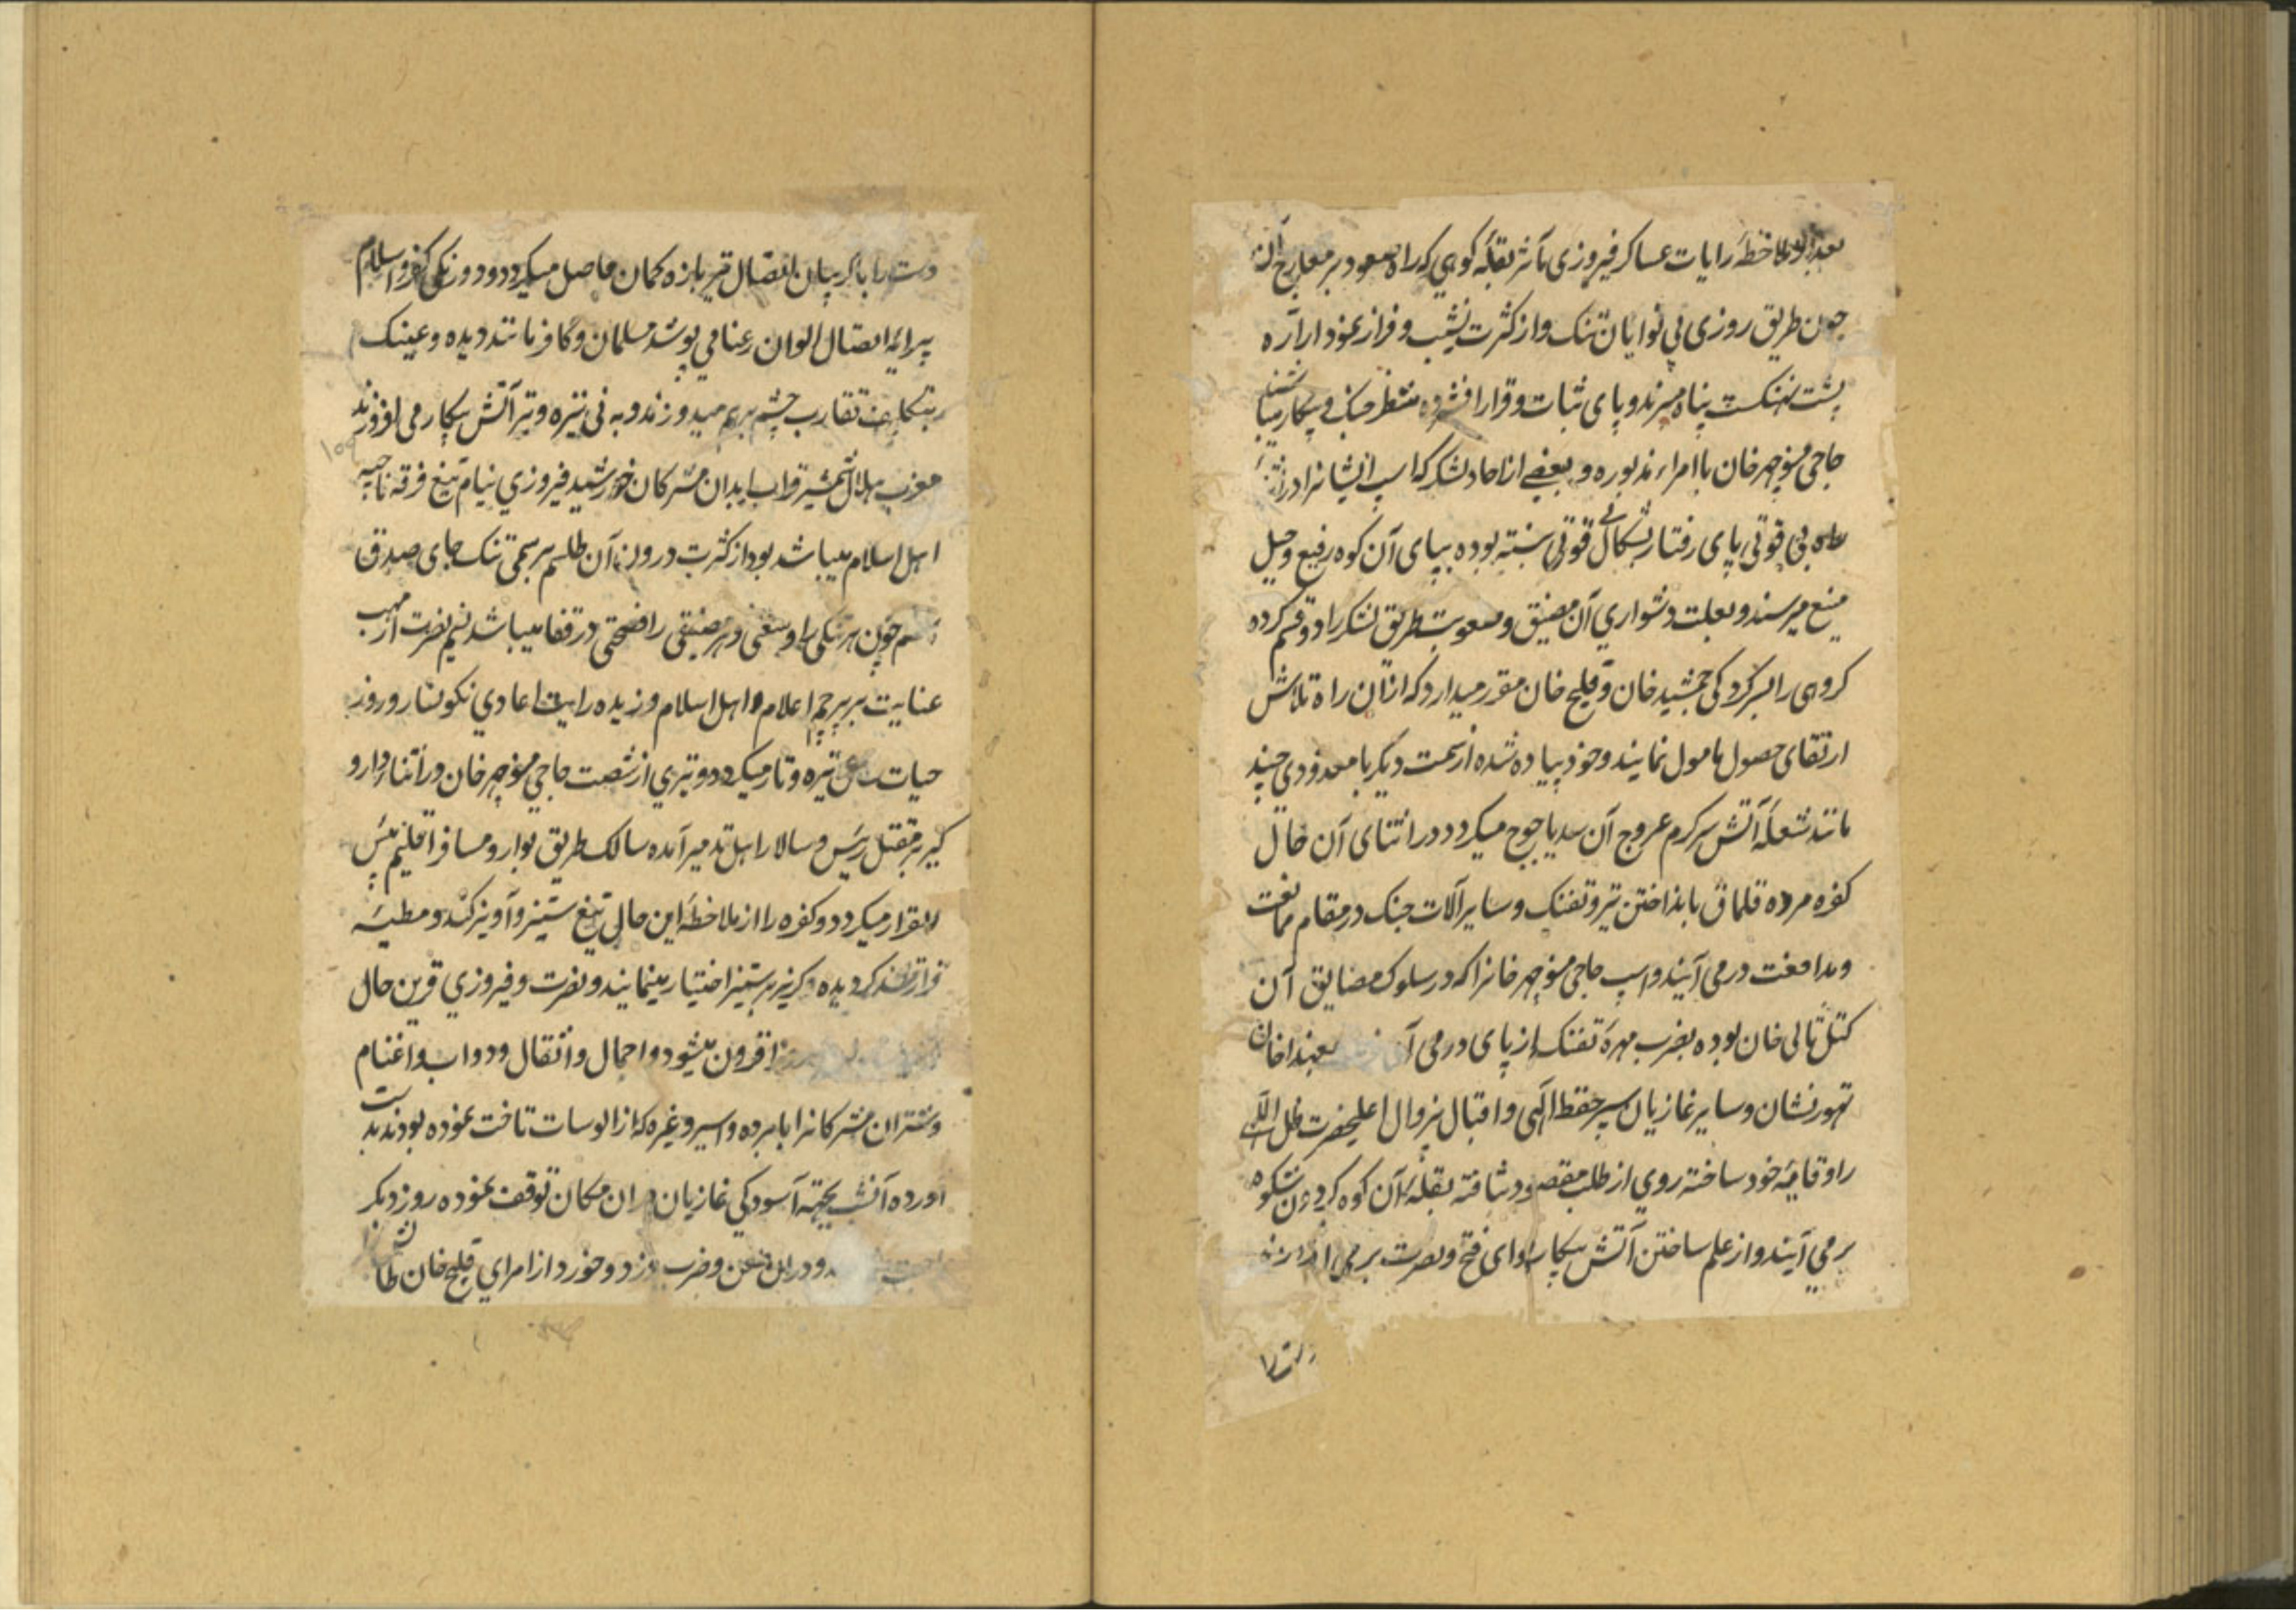 ملاحظهٔ رایات عساکر فیروزی مآثر بقلهٔ کوهی که راه صعود بر معارج آن
چون طریق روزی بی نوایان تنک و از کثرت نشیب و فراز نمودار ارّه
پشت نهنکست پناه میبرند و پای ثبات و قرار افشرده منتظر جنک و پیکار میباشند
حاجی منوچهر خان با امراء مذبوره و بعضی از احاد لشکر که اسب ایشانرا در
بی قوتی پای رفتار بشکال بی قوتی بسته بوده بپای آن کوه رفیع و جبل
منیع میرسند و بعلت دشواری آن مضیق و صعوبت طریق لشکر را دو قسم کرده
کروهی را بسرکردکی جمشید خان و قلیج خان مقرر میدارد که از آن راه تلاش
ارتقای حصول مامول نمایند و خود پیاده شده از سمت دیکر با معدودی چند
مانند شعلهٔ آتش سرکرم عروج آن سد یاجوج میکردد در اثنای آن حال
کفره مرده قلماق بانداختن تیر و تفنک و سایر آلات جنک در مقام ممانعت
و مدافعت در می آیند و اسب حاجی منوچهر خانرا که در سلوک مضایق آن
کتل تالی خان بوده بضرب مهرهٔ تفنک از پای در می آ خان
تهور نشان و سایر غازیان سپر حفظ الهی و اقبال بیزوال اعلیحضرت ظل اللهی
را وقایهٔ خود ساخته روی از طلب مقصود نتافته بقلهٔ آن کوه کردون شکوه
بر می آیند و از علم ساختن آتش پیکار لوای فتح و نصرت بر می
دست را با کریبان اتصال تیر با زه کمان حاصل میکردد و دورنکی کفر و اسلام
پیرایهٔ اتصال الوان رعنا می پوشد مسلمان و کافر مانند دیده و عینک
تقارب چشم بر هم میدوزند و به نی نیزه و تیر آتش پیکار می افروزند
مغرب هلال شمشیر قراب ابدان مشرکان خورشید فیروزی نیام تیغ فرقه ناجیه
اهل اسلام میباشد بود از کثرت درون آن طلسم بر سمی تنک جای صدق
چون هر تنکی را وسعتی و هر مضیقی را فضحتی در قفا میباشد نسیم نصرت از مهب
عنایت بر پرچم اعلام اهل اسلام وزیده رایت اعادی نکونسار و روز
حیات تیره و تار میکردد و تیری از شصت حاجی منوچهر خان در اثناء دار و
کیر بر مقتل رئیس و سالار اهل تدمیر آمده سالک طریق بوار و مسافر اقلیم بئس
القرار میکردد و کفره را از ملاحظهٔ این حال تیغ ستیز و آویز کند و مطیهٔ
کردیده کریز بر ستیز اختیار مینمایند و نصرت و فیروزی قرین حال
افزون میشود و احمال و اثقال و دواب و اغنام
و شتران مشرکانرا با برده و اسیر و غیره که از الوسات تاخت نموده بودند بدست
آورده آنشب بجهته آسودکی غازیان در آن مکان توقف نموده روز دیکر
و در آن طعن و ضرب و زد و خورد از امرای قلیج خان